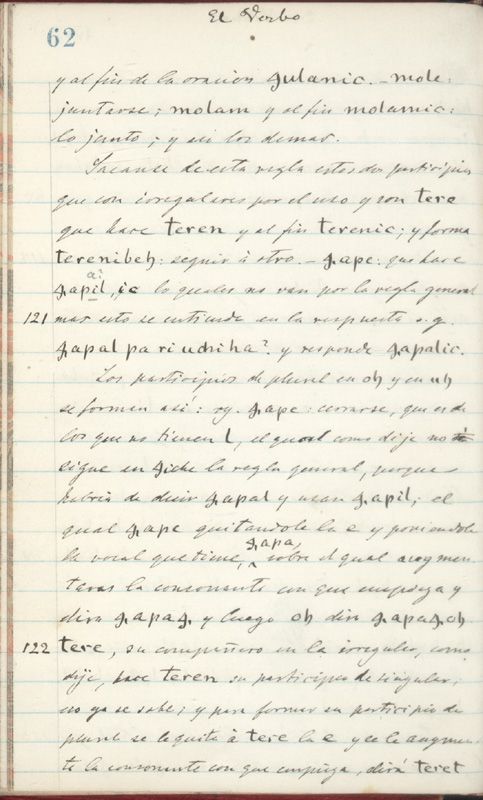 El Verbo
62
y al fin de la oracion ꜭulanic. - mole:
juntarse; molam y al fin molamic:
lo junto; y asi los demas.
Sacanse de esta regla estos dos participios
que son irregulares por el uso y son tere
que hace teren y al fin terenic; y forma
terenibeh: seguir à otro. - ꜭape: que hace
ai
ꜭapil, ic lo quales no van por la regla general
121 mas esto se entiende en la respuesta v.g.
ꜭapal pa ri uchiha? y responde ꜭapalic.
Los participios de plural en oh y en uh
se forman asi: vg. ꜭape: cerrarse, que es de
los que no tienen l, el qual como dije no
sigue en ꜭiche la regla general, porque
habria de decir ꜭapal y usan ꜭapil; el
qual ꜭape quitandole la e y poniendole
la vocal que tiene, ꜭapa, sobre el qual augmen-
taras la consonante con que empieza y
dira ꜭapaꜭ y luego oh dira ꜭapaꜭoh
122 tere, su compañero en la irregular, como
dije, hace teren su participio de singular,
como ya se sabe; y para formar su participio de
plural se le quita à tere la e y se le augmen-
ta la consonante con que empieza, dirá teret